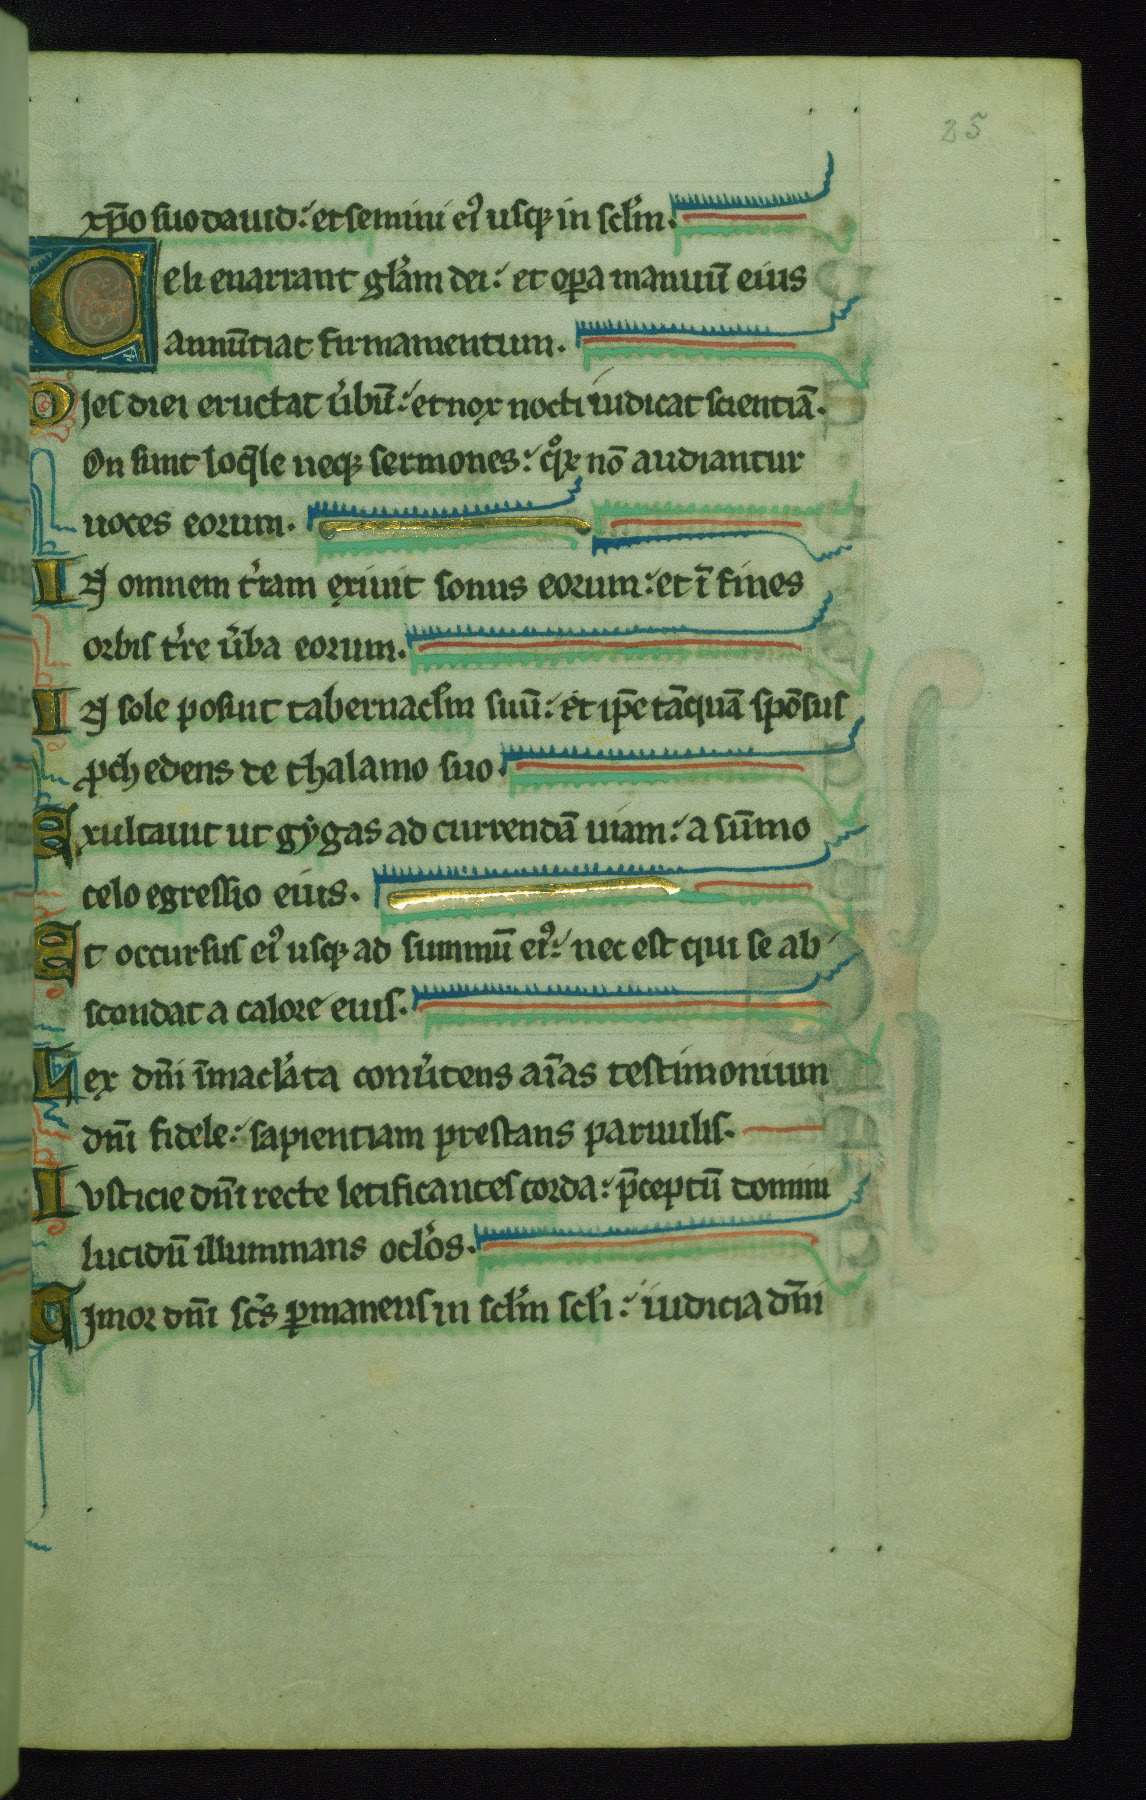 25
xp̄o suo dauid: et semini ei⁹ usqꝫ in scl̄m.
Celi enarrant gl̄am dei: et oꝑa manuū eius
annūtiat firmamentum.
Dies diei eructat u̓bū: et nox nocti iudicat scientiā.
On sunt loq̄le neqꝫ sermones: qͦꝝ nō audiantur
uoces eorum.
IN omnem t̓ram exiuit sonus eorum: et ī fines
orbis t̓re u̓ba eorum.
IN sole posuit tabernacl̄m suū: Et ip̄e tāquā spōsus
ꝓchedens de thalamo suo.
Exultauit ut gẏgas ad currendā uiam: a sūmo
celo egressio eius.
Et occursus ei⁹ usqꝫ ad summū ei⁹: nec est qui se ab
scondat a calore eius.
Lex dn̄i īmacl̓ata conu̓tens aīas testimonium
dn̄i fidele: sapientiam prestans paruulis.
Iusticie dn̄i recte letificantes corda: p̄ceptū domini
lucidū illuminans ocl̓os.
Timor dn̄i sc̄s ꝑmanens in scl̄m scl̄i: iudicia dn̄i